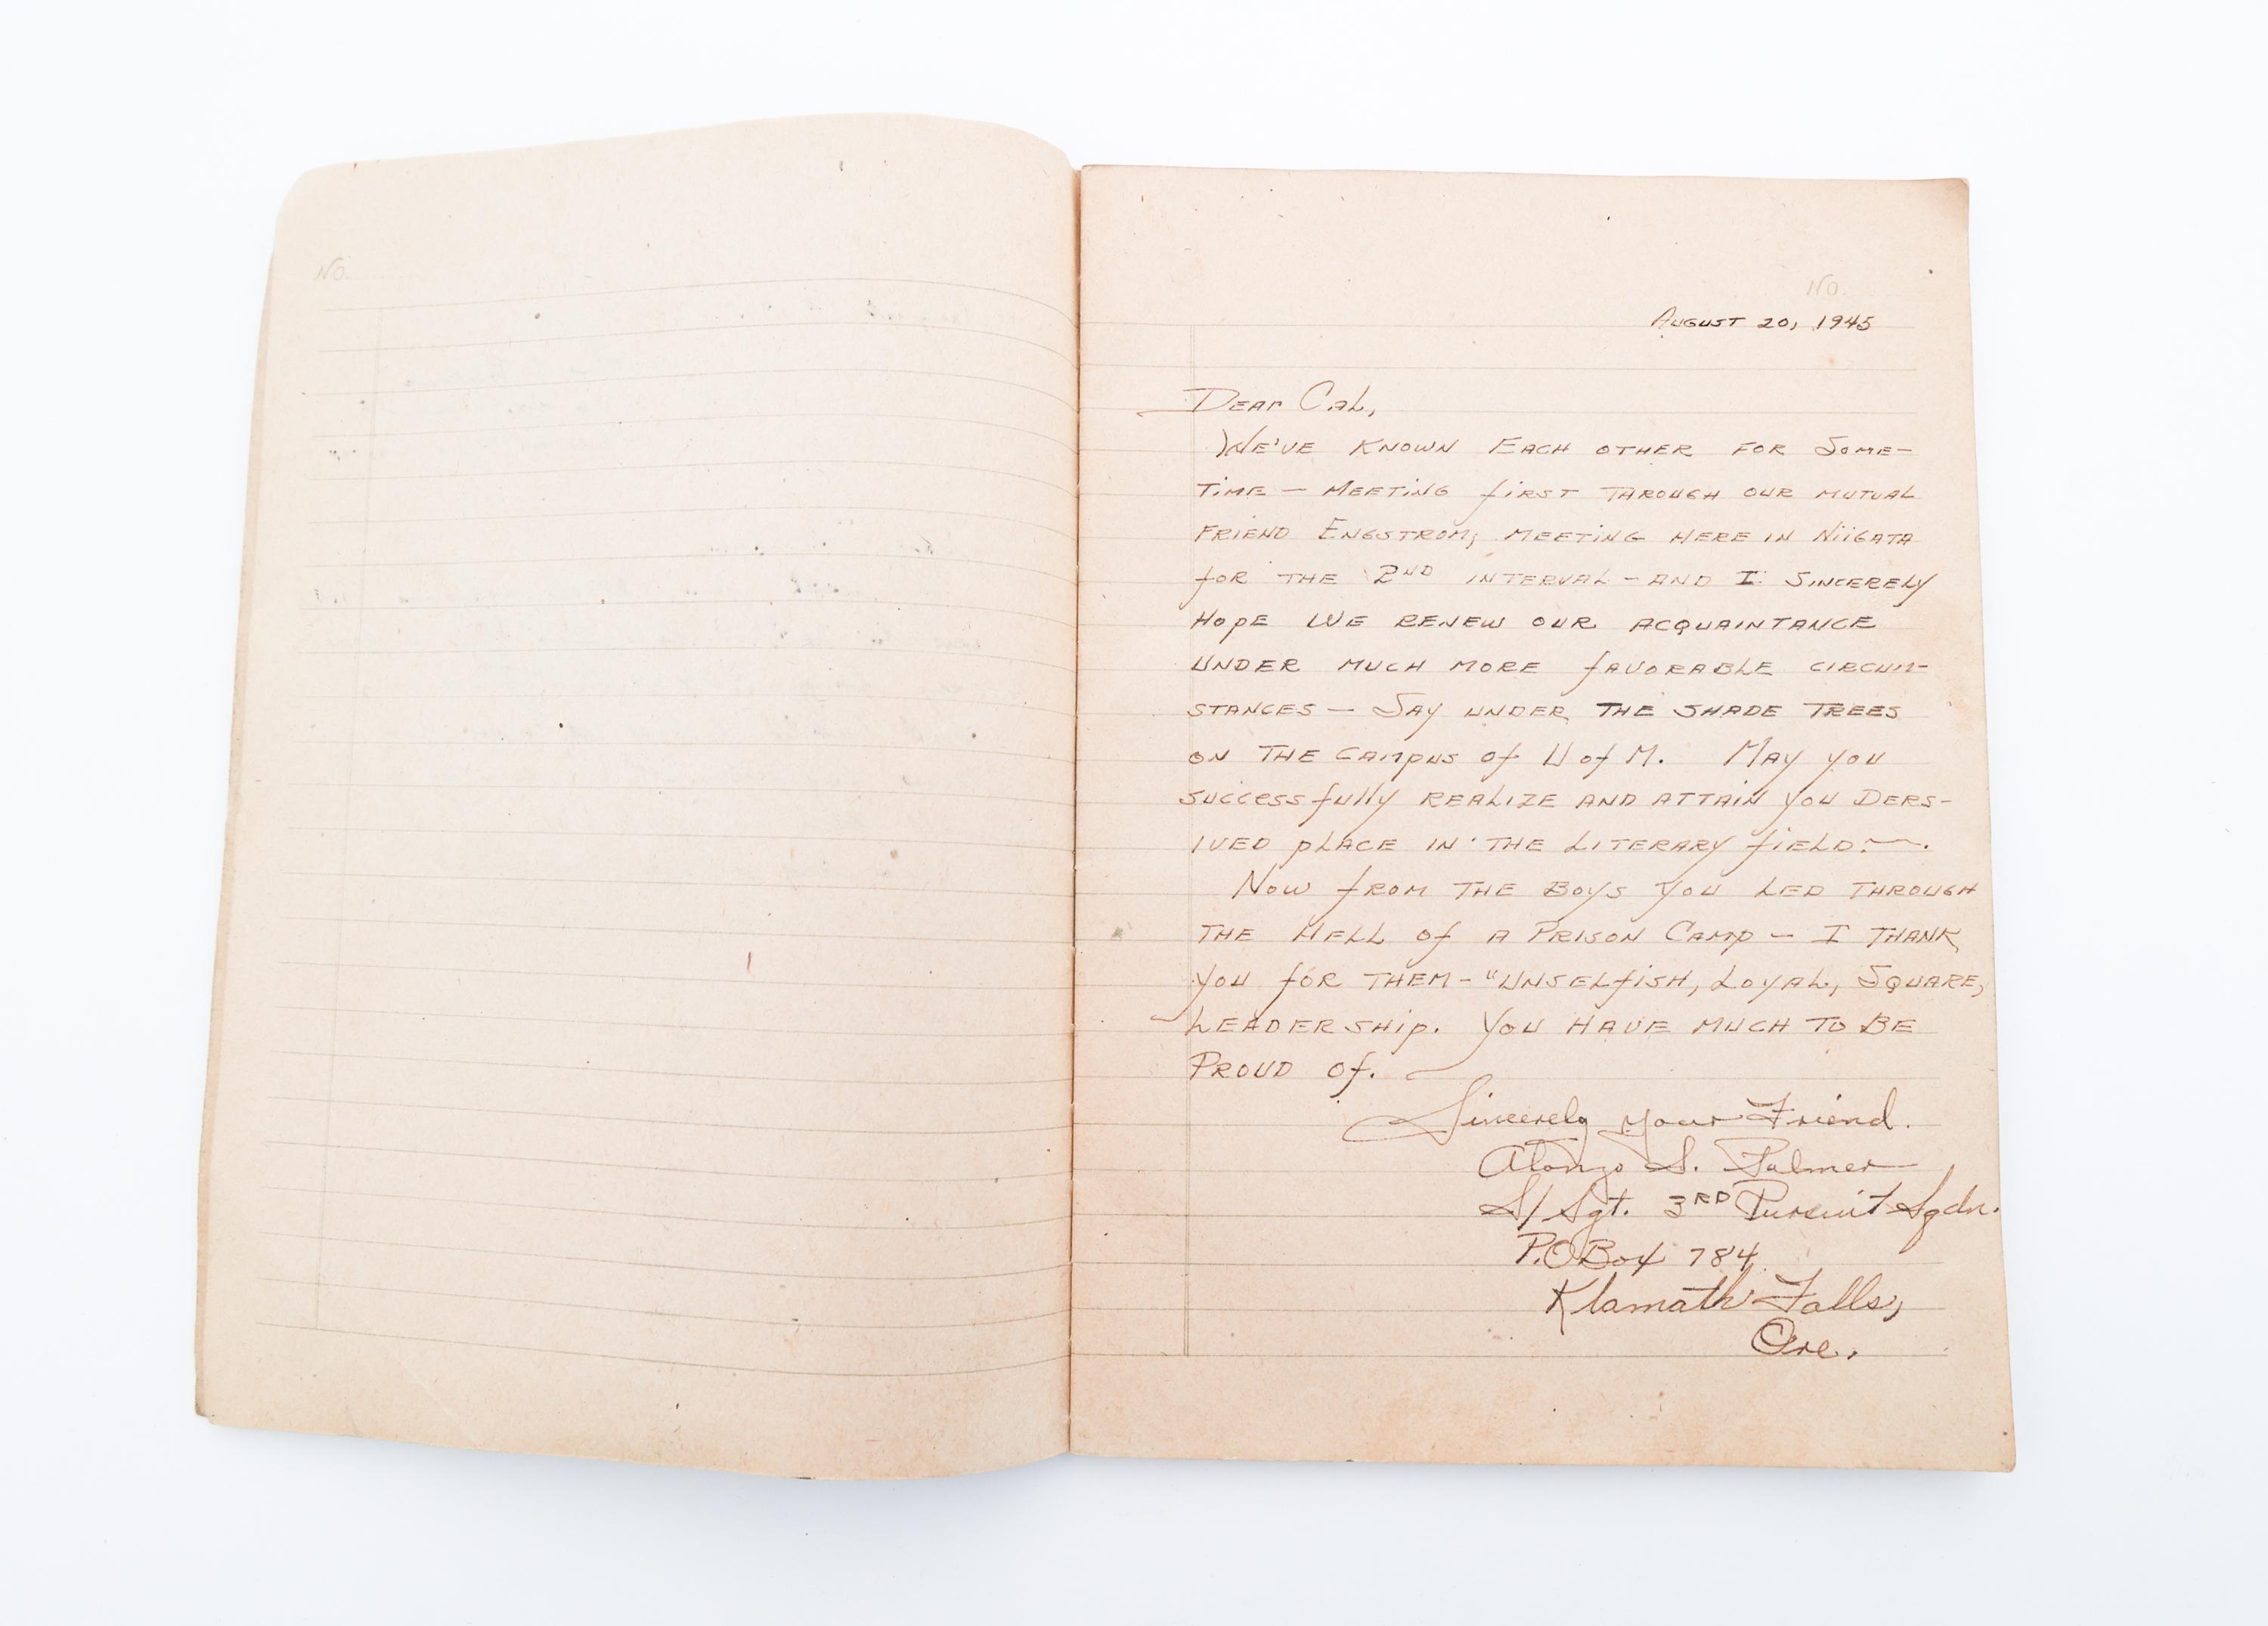 No.
No.
August 20, 1945
Dear Cal,
We've known each other for some-
time — meeting first through our mutual
friend Engstrom; meeting here in Niigata
for the 2nd interval - and I sincerely
hope we renew our acquaintance
under much more favorable circum-
stances — Say under the shade trees
on the campus of U of M. May you
successfully realize and attain you ders-
ived place in the literary field. —.
Now from the boys you led through
the Hell of a Prison Camp — I thank
you for them - "Unselfish, Loyal, Square,
Leadership. You have much to be
proud of. —
Sincerely your Friend.
Alonzo S. Palmer
S/Sgt. 3RD Pursuit Sqdn.
P.O Box 784
Klamath Falls,
Ore.